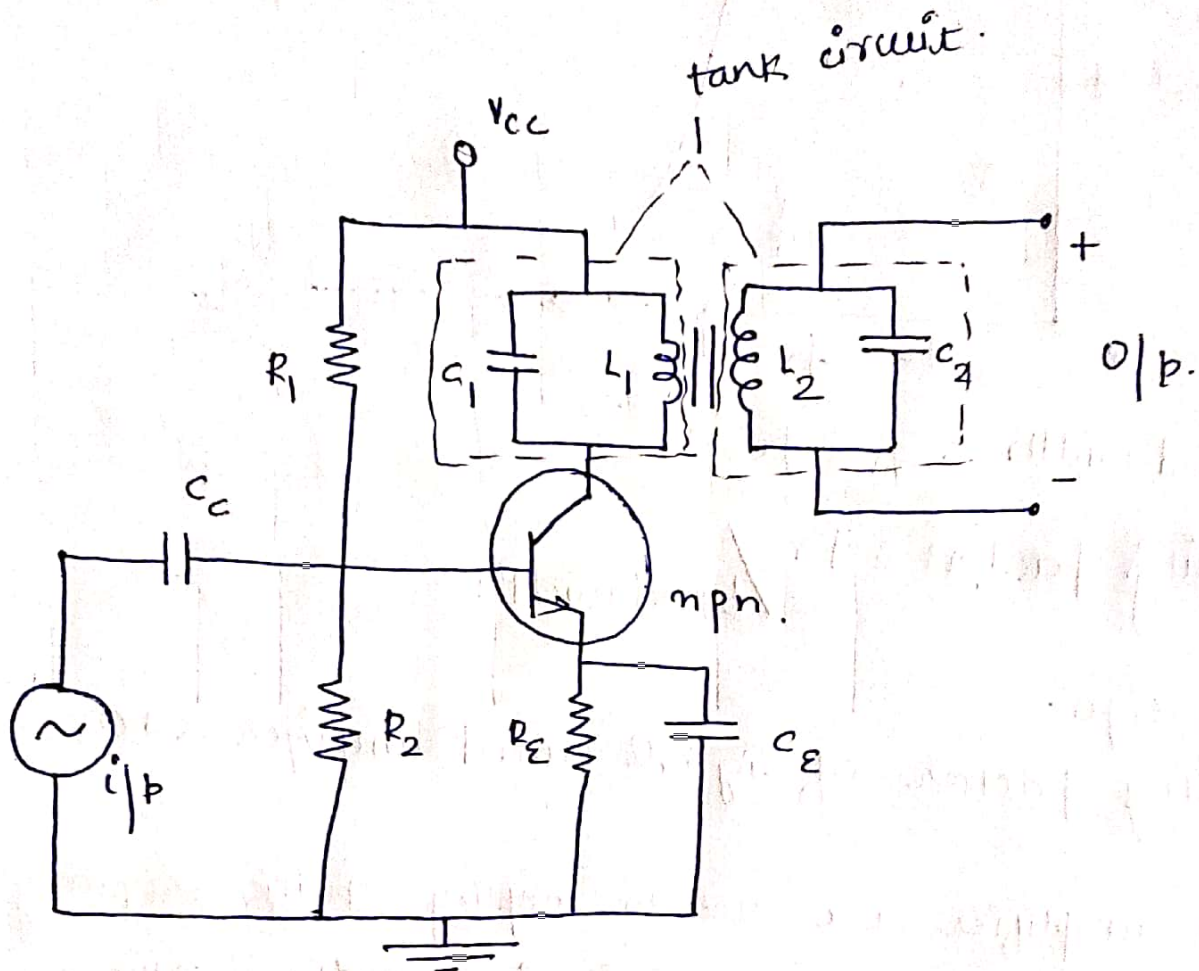 tank circuit.
VCC
R1
C1
L1
L2
C2
+
O/p.
-
Cc
npn.
i/p
R2
RE
CE